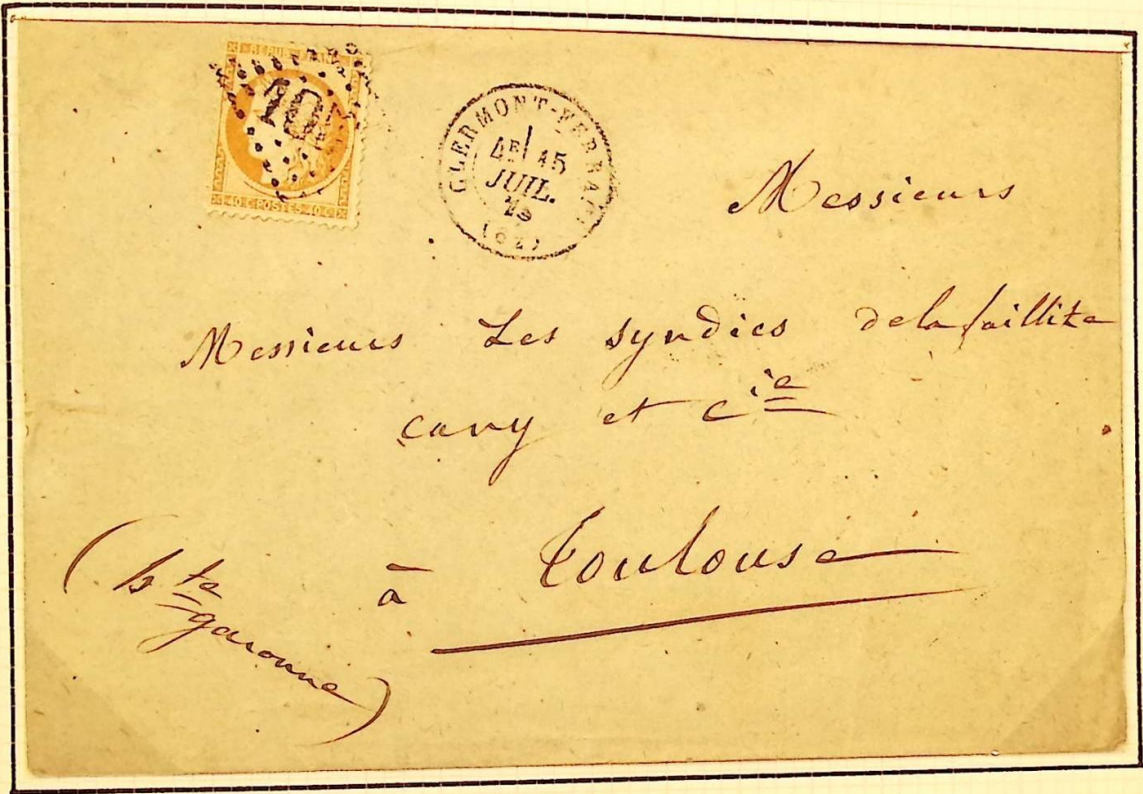 REPUB. FRANC.
40.C POSTES 40.C
CLERMONT-FERRAND
4E 15
JUIL.
(62)
Messieurs
Messieurs Les syndics de la faillite
cavy et Cie
à Toulouse
(hte
garonne)